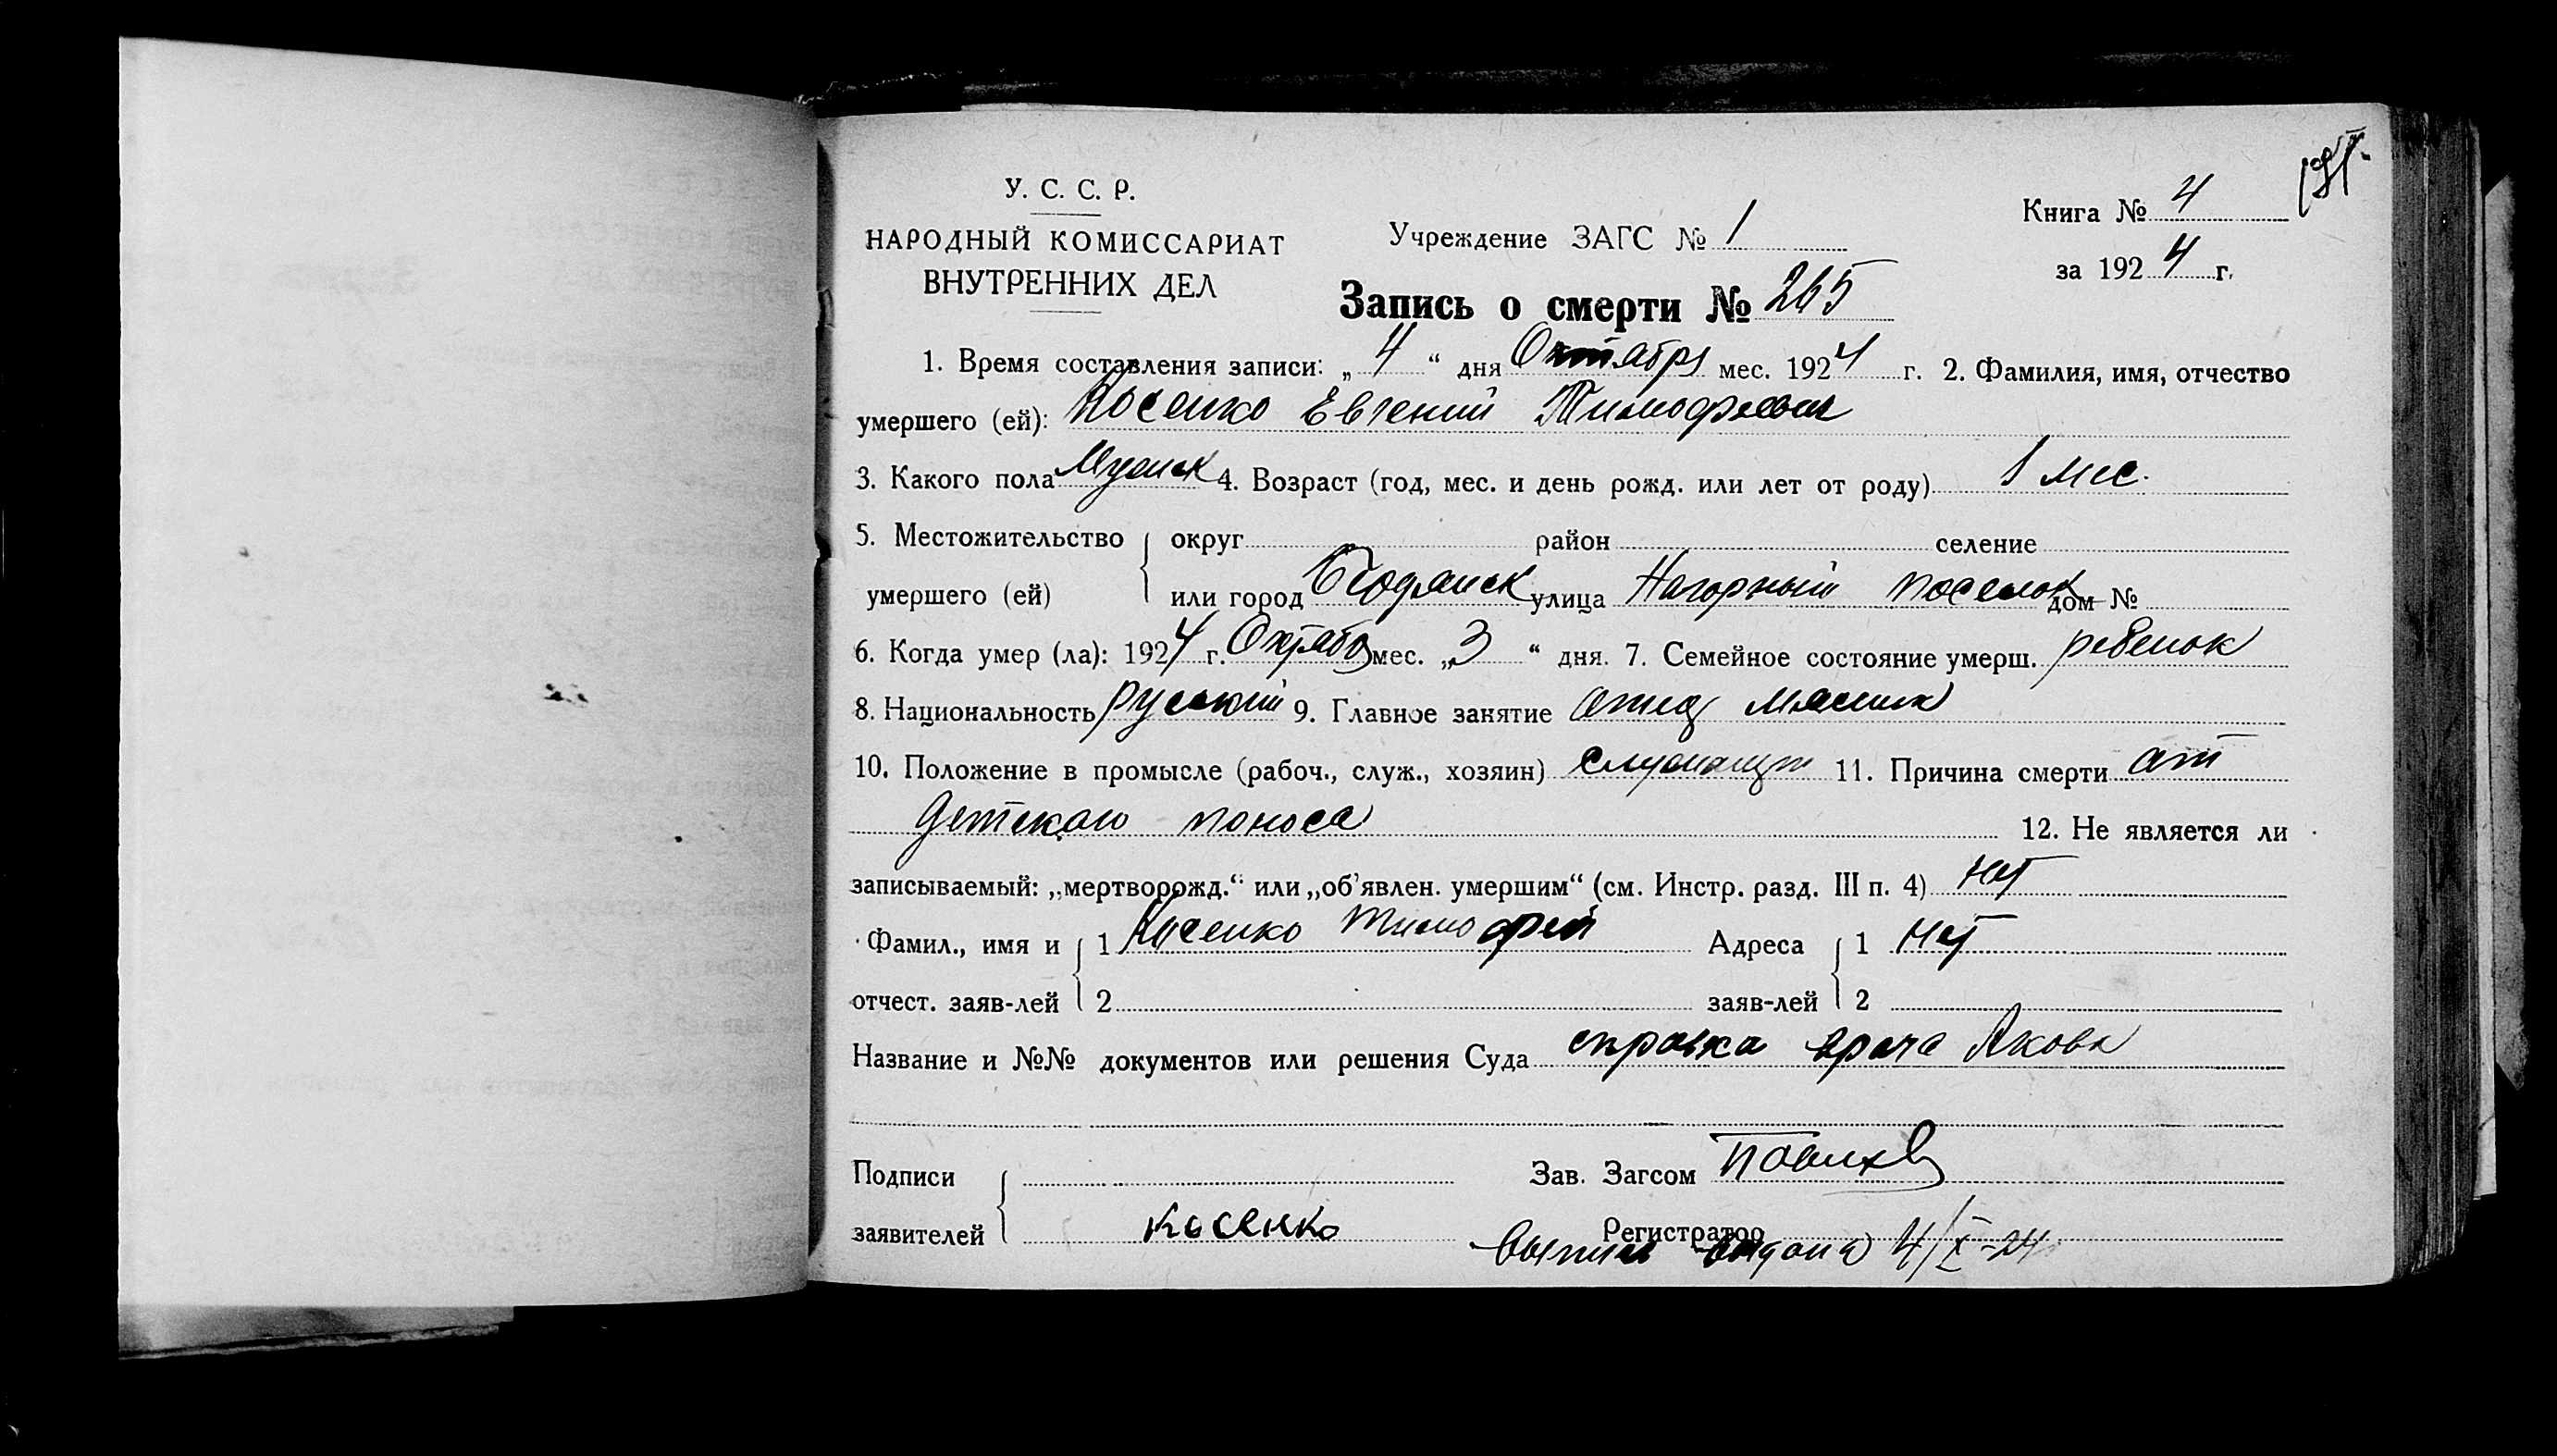 У. С. С. Р.
НАРОДНЫЙ КОМИССАРИАТ
ВНУТРЕННИХ ДЕЛ
Учреждение ЗАГС № 1
Книга № 4
за 1924 г.
Запись о смерти № 265
1. Время составления записи: „4“ дня Октября мес. 1924 г. 2. Фамилия, имя, отчество
умершего (ей): Косенко Евгений Тимофеевич
3. Какого пола Мужск 4. Возраст (год, мес. и день рожд. или лет от роду) 1 мес.
5. Местожительство округ район селение
умершего (ей) или город улица Нагорный поселок дом №
6. Когда умер (ла): 1924 г. Октября мес. „3“ дня. 7. Семейное состояние умерш. ребенок
8. Национальность русский 9. Главное занятие отец
10. Положение в промысле (рабоч., служ., хозяин) служащий 11. Причина смерти от
детского поноса 12. Не является ли
записываемый: „мертворожд.“ или „об'явлен. умершим“ (см. Инстр. разд. III п. 4) нет
Фамил., имя и 1 Косенко Тимофей Адреса 1 нет
отчест. заяв-лей 2 заяв-лей 2
Название и №№ документов или решения Суда справка врача
Подписи Зав. Загсом
заявителей Косенко Регистратор
выпись выдана 4/X-24